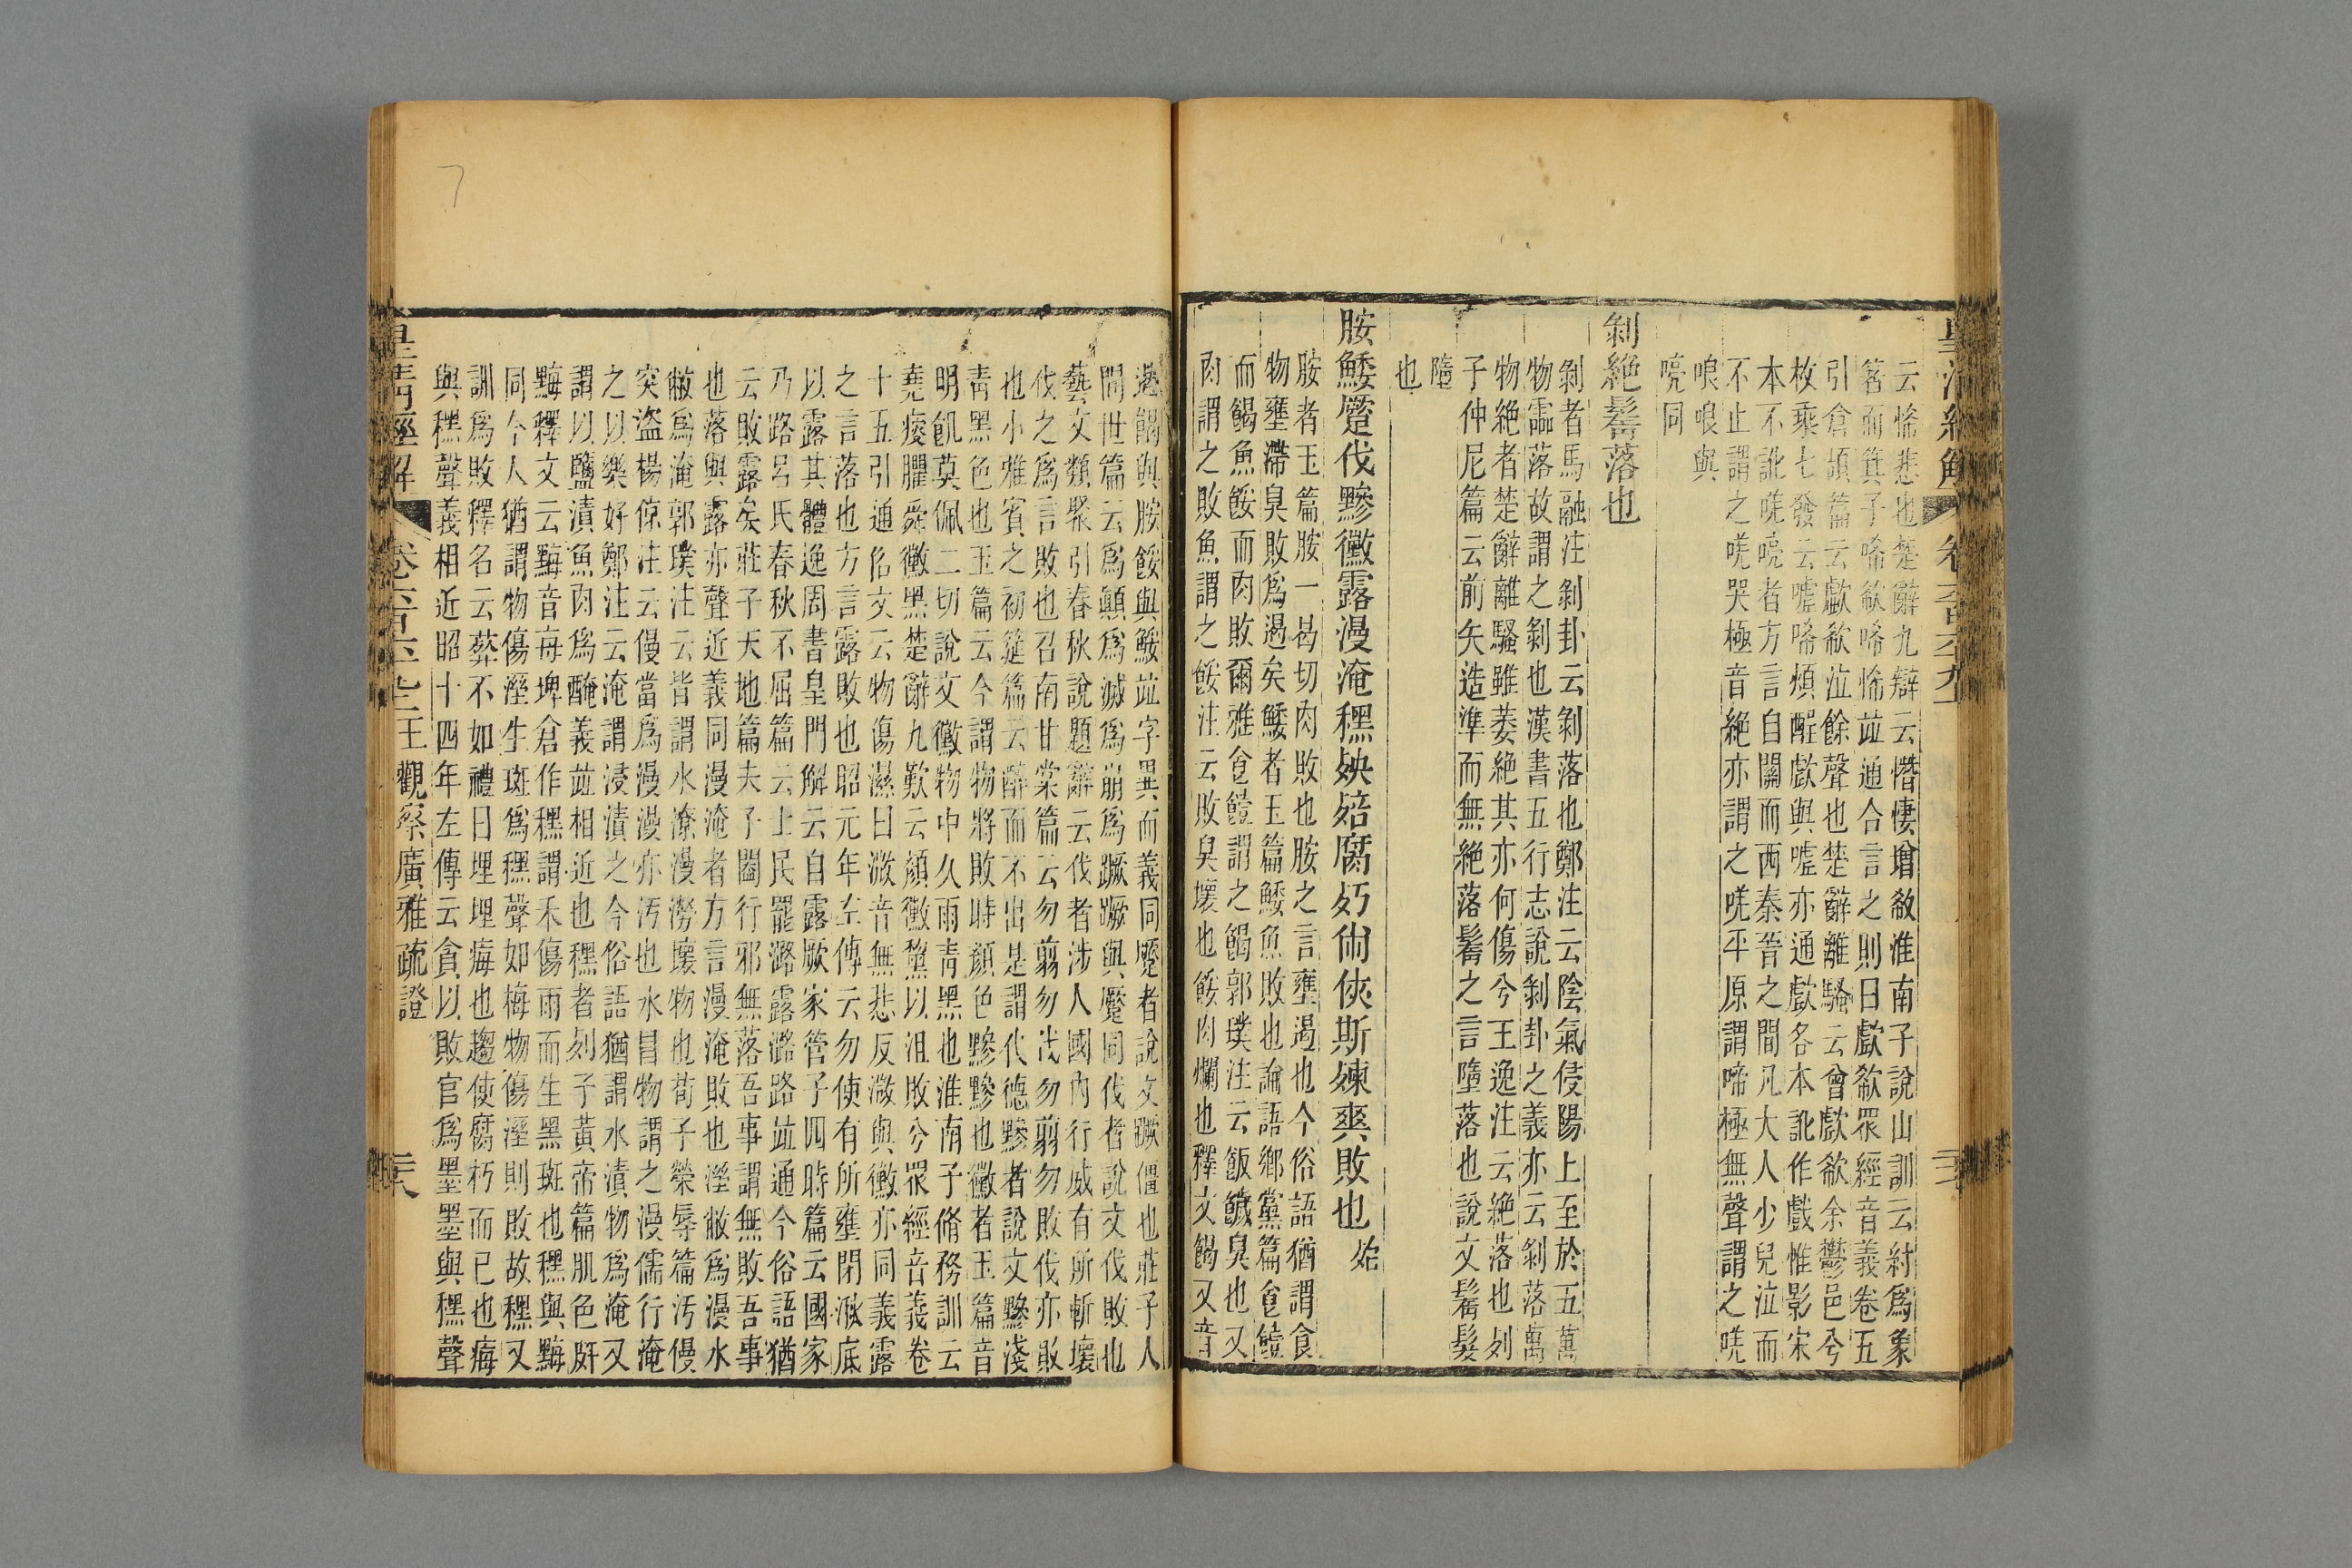 云悕悲也楚辭九辯云憯悽增欷淮南子說山訓云紂爲象
箸而箕子唏欷唏悕竝通合言之則曰歔欷眾經音義卷五
引倉頡篇云歔欷泣餘聲也楚辭離騷云曾歔欷余鬱邑兮
枚乘七發云噓唏煩酲歔與噓亦通歔各本訛作戲惟影宋
本不訛唴喨者方言自關而西秦晉之間凡大人少兒泣而
不止謂之唴哭極音絕亦謂之唴平原謂啼極無聲謂之唴
哴哴與
喨同
剝絕鬌落也
剝者馬融注剝卦云剝落也鄭注云陰氣侵陽上至於五萬
物霝落故謂之剝也漢書五行志說剝卦之義亦云剝落萬
物絕者楚辭離騷雖萎絕其亦何傷兮王逸注云絕落也列
子仲尼篇云前矢造準而無絕落鬌之言墮落也說文鬌髮
隋
也
胺鯘蹷伐黲黴露漫淹䅫妜㱙腐朽㡀俠斯煉爽敗也
胺者玉篇胺一曷切肉敗也胺之言壅遏也今俗語猶謂食
物壅滯臭敗爲遏矣鯘者玉篇鯘魚敗也論語鄉黨篇食饐
而餲魚餒而肉敗爾雅食饐謂之餲郭璞注云飯饖臭也又
肉謂之敗魚謂之餒注云敗臭壞也餒肉爛也釋文餲又音
遏餲與胺餒與鯘竝字異而義同蹷者說文蹶僵也莊子人
間世篇云爲顚爲滅爲崩爲蹶蹶與蹷同伐者說文伐敗也
藝文類聚引春秋說題辭云伐者涉人國內行威有所斬壞
伐之爲言敗也召南甘棠篇云勿翦勿伐勿翦勿敗伐亦敗
也小雅賓之初筵篇云醉而不出是謂伐德黲者說文黲淺
靑黑色也玉篇云今謂物將敗時顏色黲黲也黴者玉篇音
明飢莫佩二切說文黴物中久雨靑黑也淮南子脩務訓云
堯瘦臞舜黴黑楚辭九歎云顏黴黧以沮敗兮眾經音義卷
十五引通俗文云物傷濕曰溦音無悲反溦與黴亦同義露
之言落也方言露敗也昭元年左傳云勿使有所壅閉湫底
以露其體逸周書皇門解云自露厥家管子四時篇云國家
乃路呂氏春秋不屈篇云士民罷潞露潞路竝通今俗語猶
云敗露矣莊子天地篇夫子闔行邪無落吾事謂無敗吾事
也落與露亦聲近義同漫淹者方言漫淹敗也溼敝爲漫水
敝爲淹郭璞注云皆謂水潦漫澇壞物也荀子榮辱篇汙僈
突盜楊倞注云僈當爲漫漫亦汙也水冒物謂之漫儒行淹
之以樂好鄭注云淹謂浸漬之今俗語猶謂水漬物爲淹又
謂以鹽漬魚肉爲醃義竝相近也䅫者列子黃帝篇肌色皯
黣釋文云黣音每埤倉作䅫謂禾傷雨而生黑斑也䅫與黣
同今人猶謂物傷溼生斑爲䅫聲如梅物傷溼則敗故䅫又
訓爲敗釋名云葬不如禮曰埋埋痗也趨使腐朽而已也痗
與䅫聲義相近昭十四年左傳云貪以敗官爲墨墨與䅫聲
皇清經解 王觀察廣雅疏證